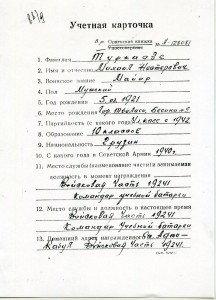 Учетная карточка
1. Фамилия
2. Имя и отчество Михаил Несторович
3. Воинское звание Майор
4. Пол Мужской
5. Год рождения 1921
6. Место рождения
7. Партийность (с какого года) Чл КПСС с 1942
8. Образование 10 классов
9. Национальность Грузин
10. С какого года в Советской Армии 1940г.
11. Место службы (наименование части) и занимаемая
должность в момент награждения
Войсковая Часть 19241
Командир учебной батареи
12. Место службы и должность в настоящее время
Войсковая Часть 19241
Командир Учебной батареи
13. Домашний адрес награжденного
Войсковая Часть 19241.